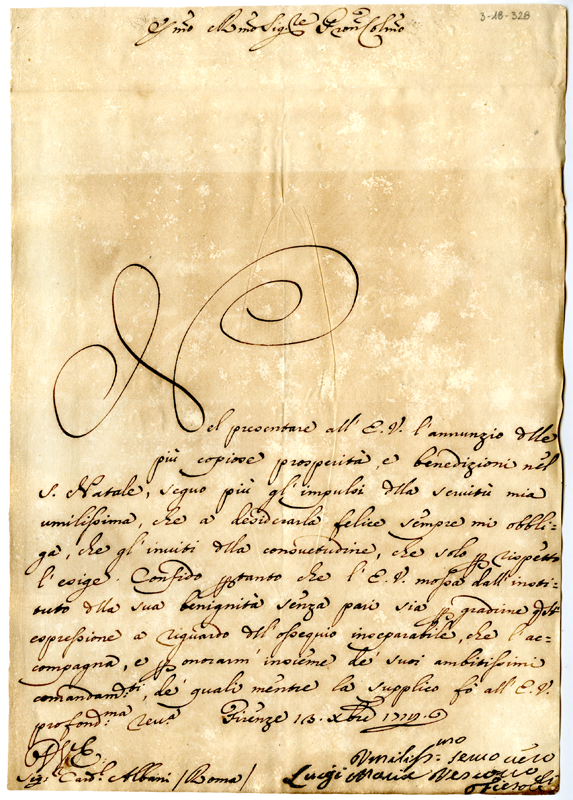 3-18-328
Em̃o Rm̃o Sig.re Pron Colm̃o
Nel presentare all' E. V. l'annunzio dlle
più copiose prosperità, e benedizioni nel
S. Natale, seguo più gl'impulsi dlla servitù mia
umilissima, che a desiderarla felice sempre mi obbli=
ga, che gl'inviti dlla consuetudine, che solo p rispetto
l'esige. Confido ptanto che l'E. V. mossa dall'insti=
tuto dlla sua benignità senza pari sia p gradirne
espressione a riguardo dll'ossequio inseparabile, che l'ac=
compagna, e p onorarm' insieme de' suoi ambitissimi
comandam.ti, de' quali mentre la supplico fo all'E. V.
profond.ma rev.a Firenze Xbre 1719.
Sig.r Card.l Albani / Roma /
Umiliss.mo servo vero
Luigi Maria Vescovo
di Fiesole